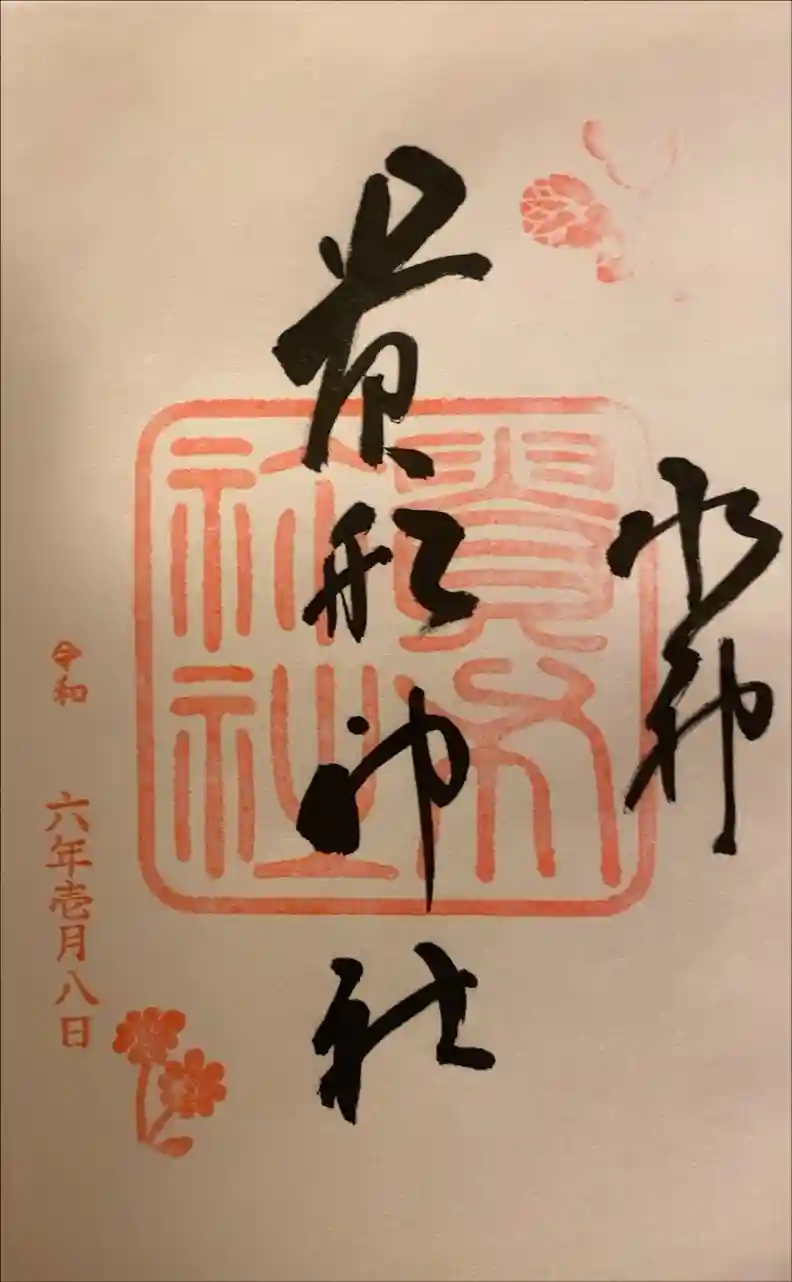 水神
貴船神社
貴布
祢社
令和六年壱月八日